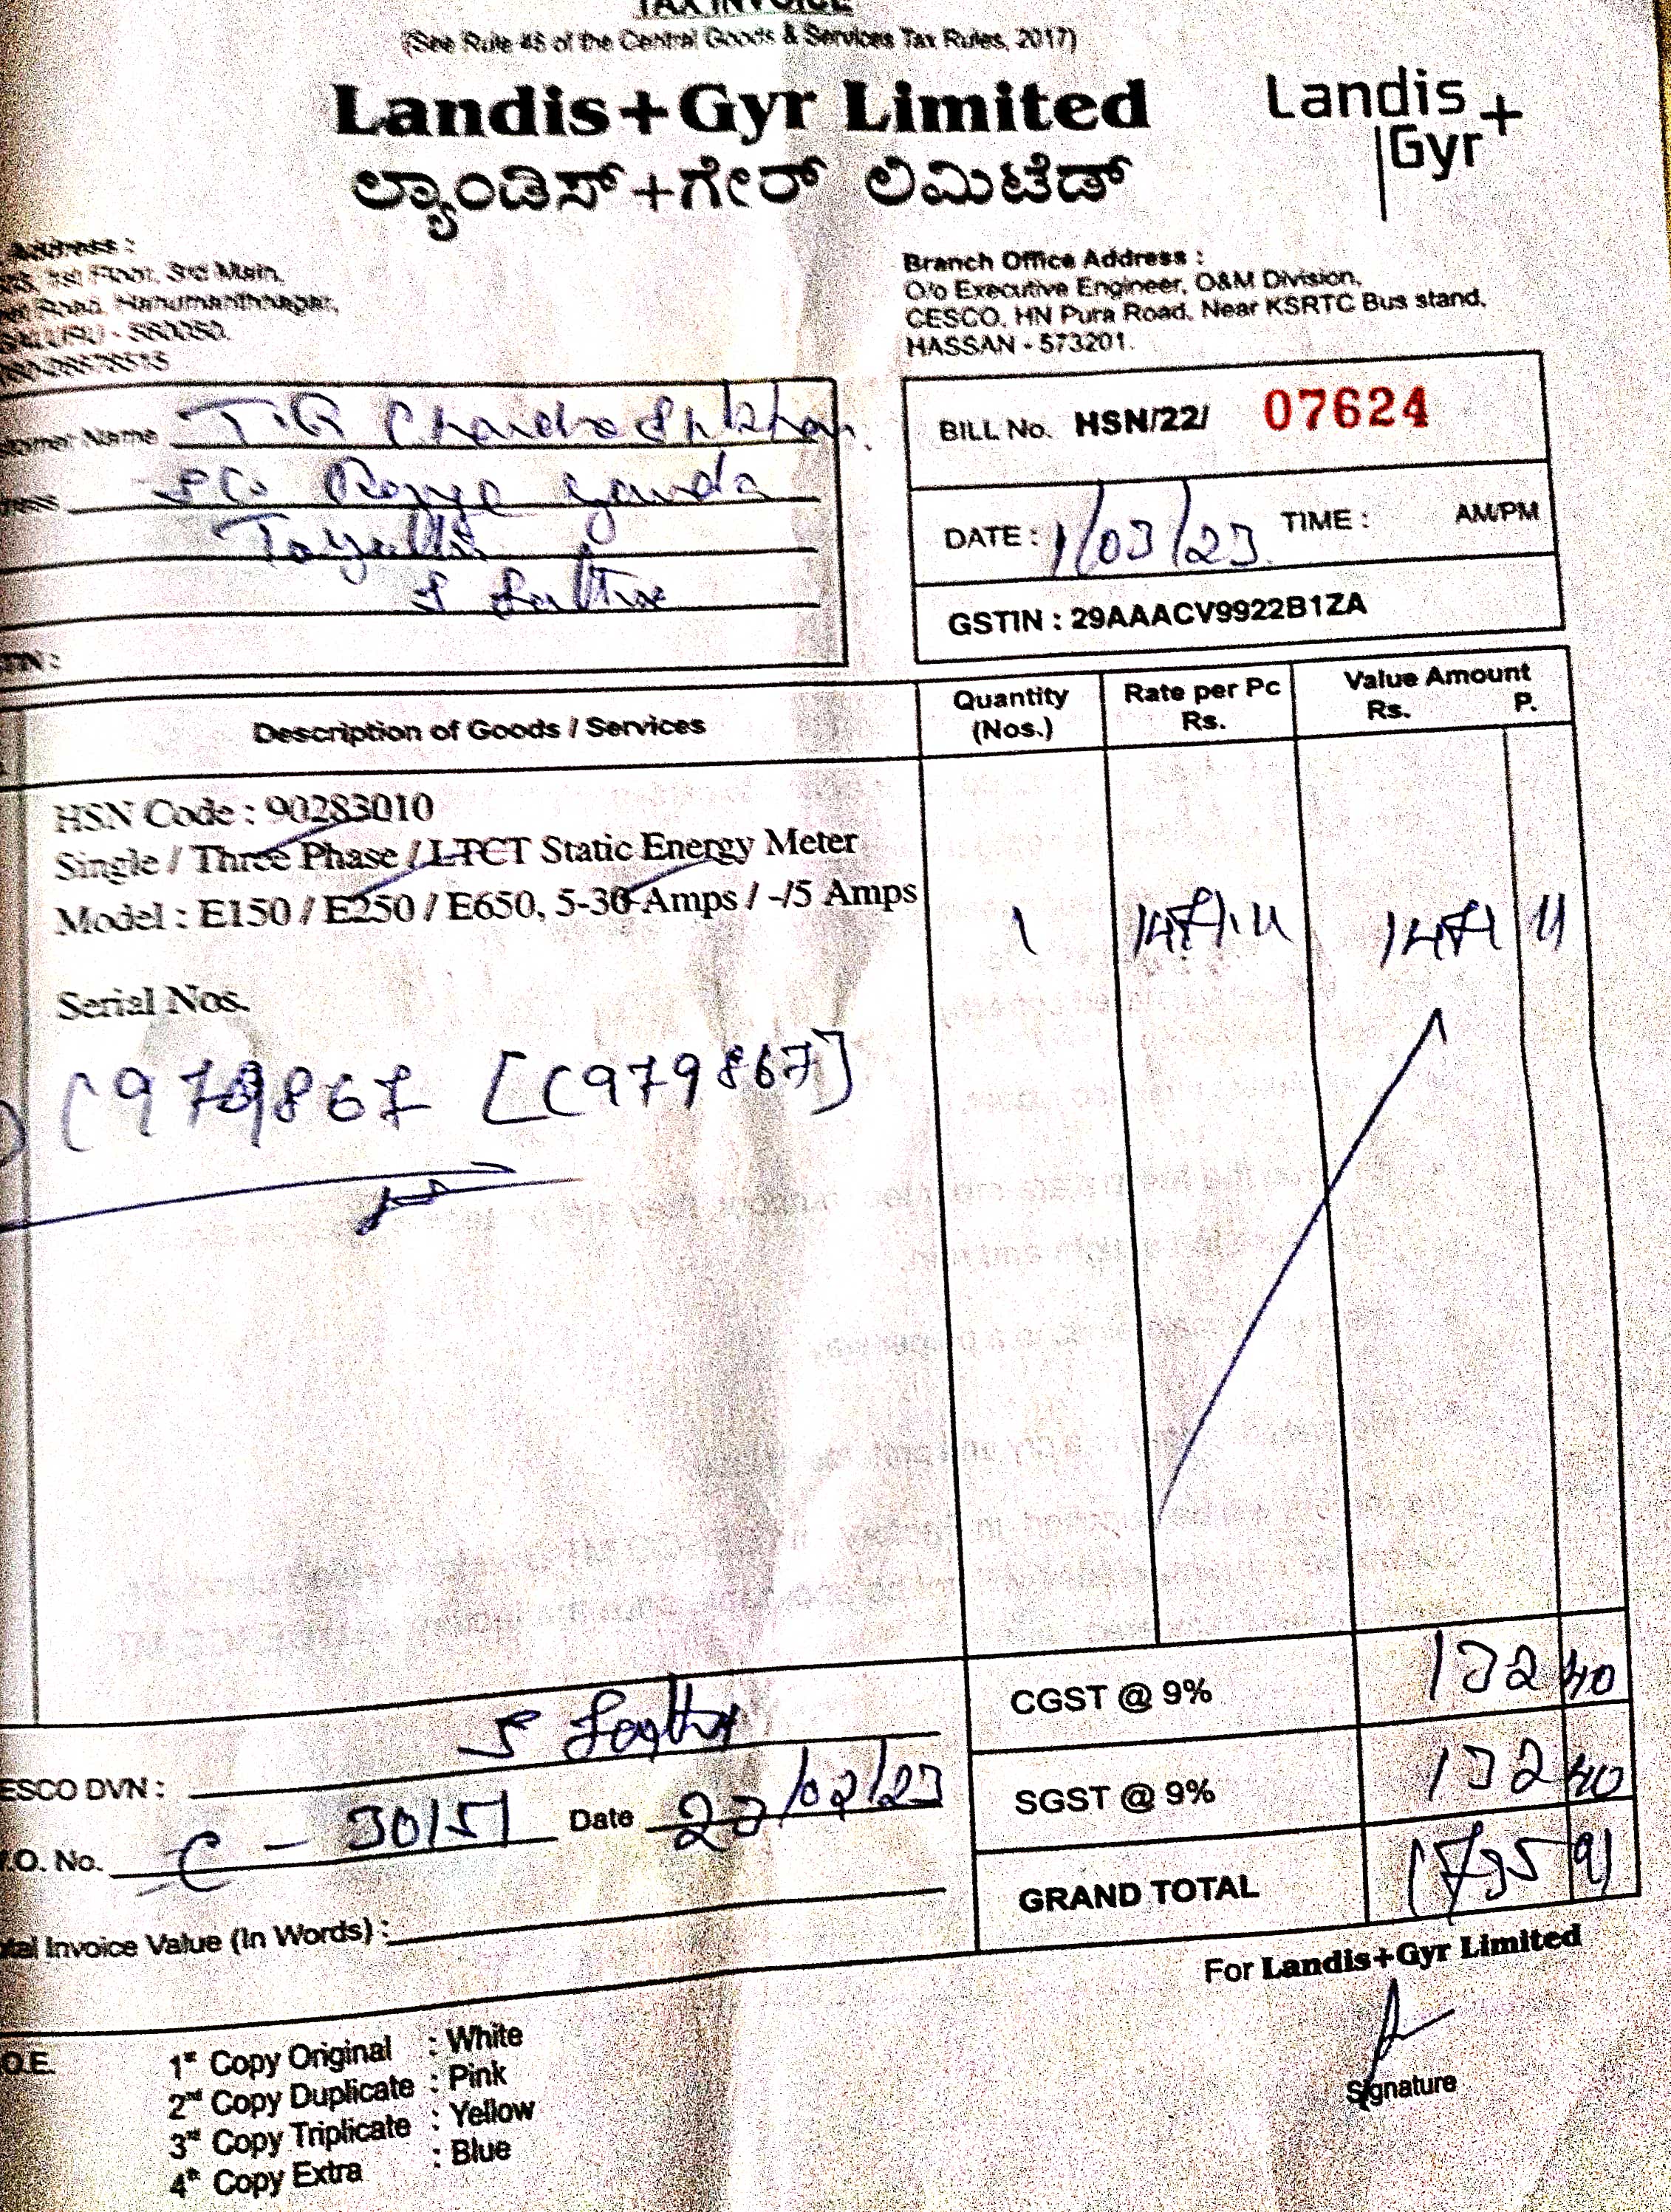 TAX INVOICE
(See Rule 46 of the Central Goods & Services Tax Rules, 2017)
Landis+Gyr Limited
ಲ್ಯಾಂಡಿಸ್+ಗೇರ್ ಲಿಮಿಟೆಡ್
Landis
Gyr+
Address :
1st Floor, 3rd Main,
Road, Hanumanthnagar,
- 560050.
Branch Office Address :
O/o Executive Engineer, O&M Division,
CESCO, HN Pura Road, Near KSRTC Bus stand,
HASSAN - 573201.
Name T.R
gowda
BILL No. HSN/22/ 07624
DATE : 1/03/23. TIME : AM/PM
GSTIN : 29AAACV9922B1ZA
Description of Goods / Services
Quantity
(Nos.)
Rate per Pc
Rs.
Value Amount
Rs. P.
HSN Code : 90283010
Single / Three Phase / LTCT Static Energy Meter
Model : E150 / E250 / E650, 5-30 Amps / -/5 Amps
1 1471.11 1471 11
Serial Nos.
C979867 [C979867]
CGST @ 9% 132 40
SGST @ 9% 132 40
GRAND TOTAL 1735 91
ESCO DVN :
.O. No. C - 30151 Date 22/02/23
Invoice Value (In Words) :
For Landis+Gyr Limited
Signature
O.E.
1st Copy Original : White
2nd Copy Duplicate : Pink
3rd Copy Triplicate : Yellow
4th Copy Extra : Blue